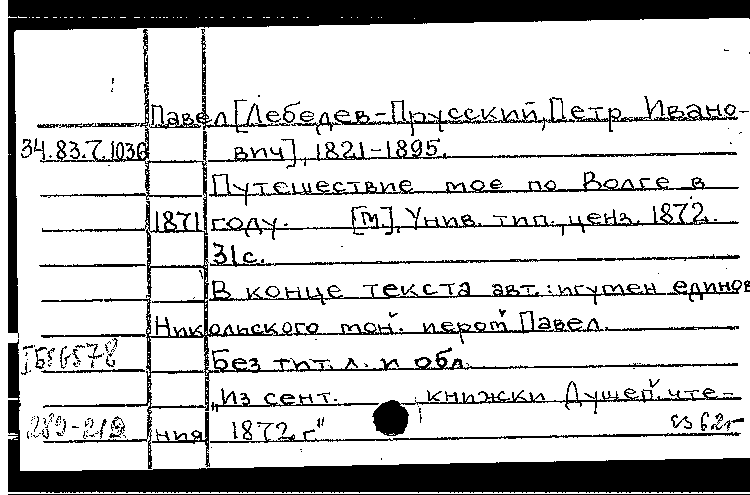 Павел [Лебедев-Прусский, Петр Ивано-
34.83.7.1036 вич], 1821-1895.
Путешествие мое по Волге в
1871 году. [М.], Унив. тип., ценз. 1872.
31с.
В конце текста авт.: игумен единов
Никольского мон. иером. Павел.
Без тит. л. и обл.
„Из сент. книжки Душеп. чте-
ния 1872 г"